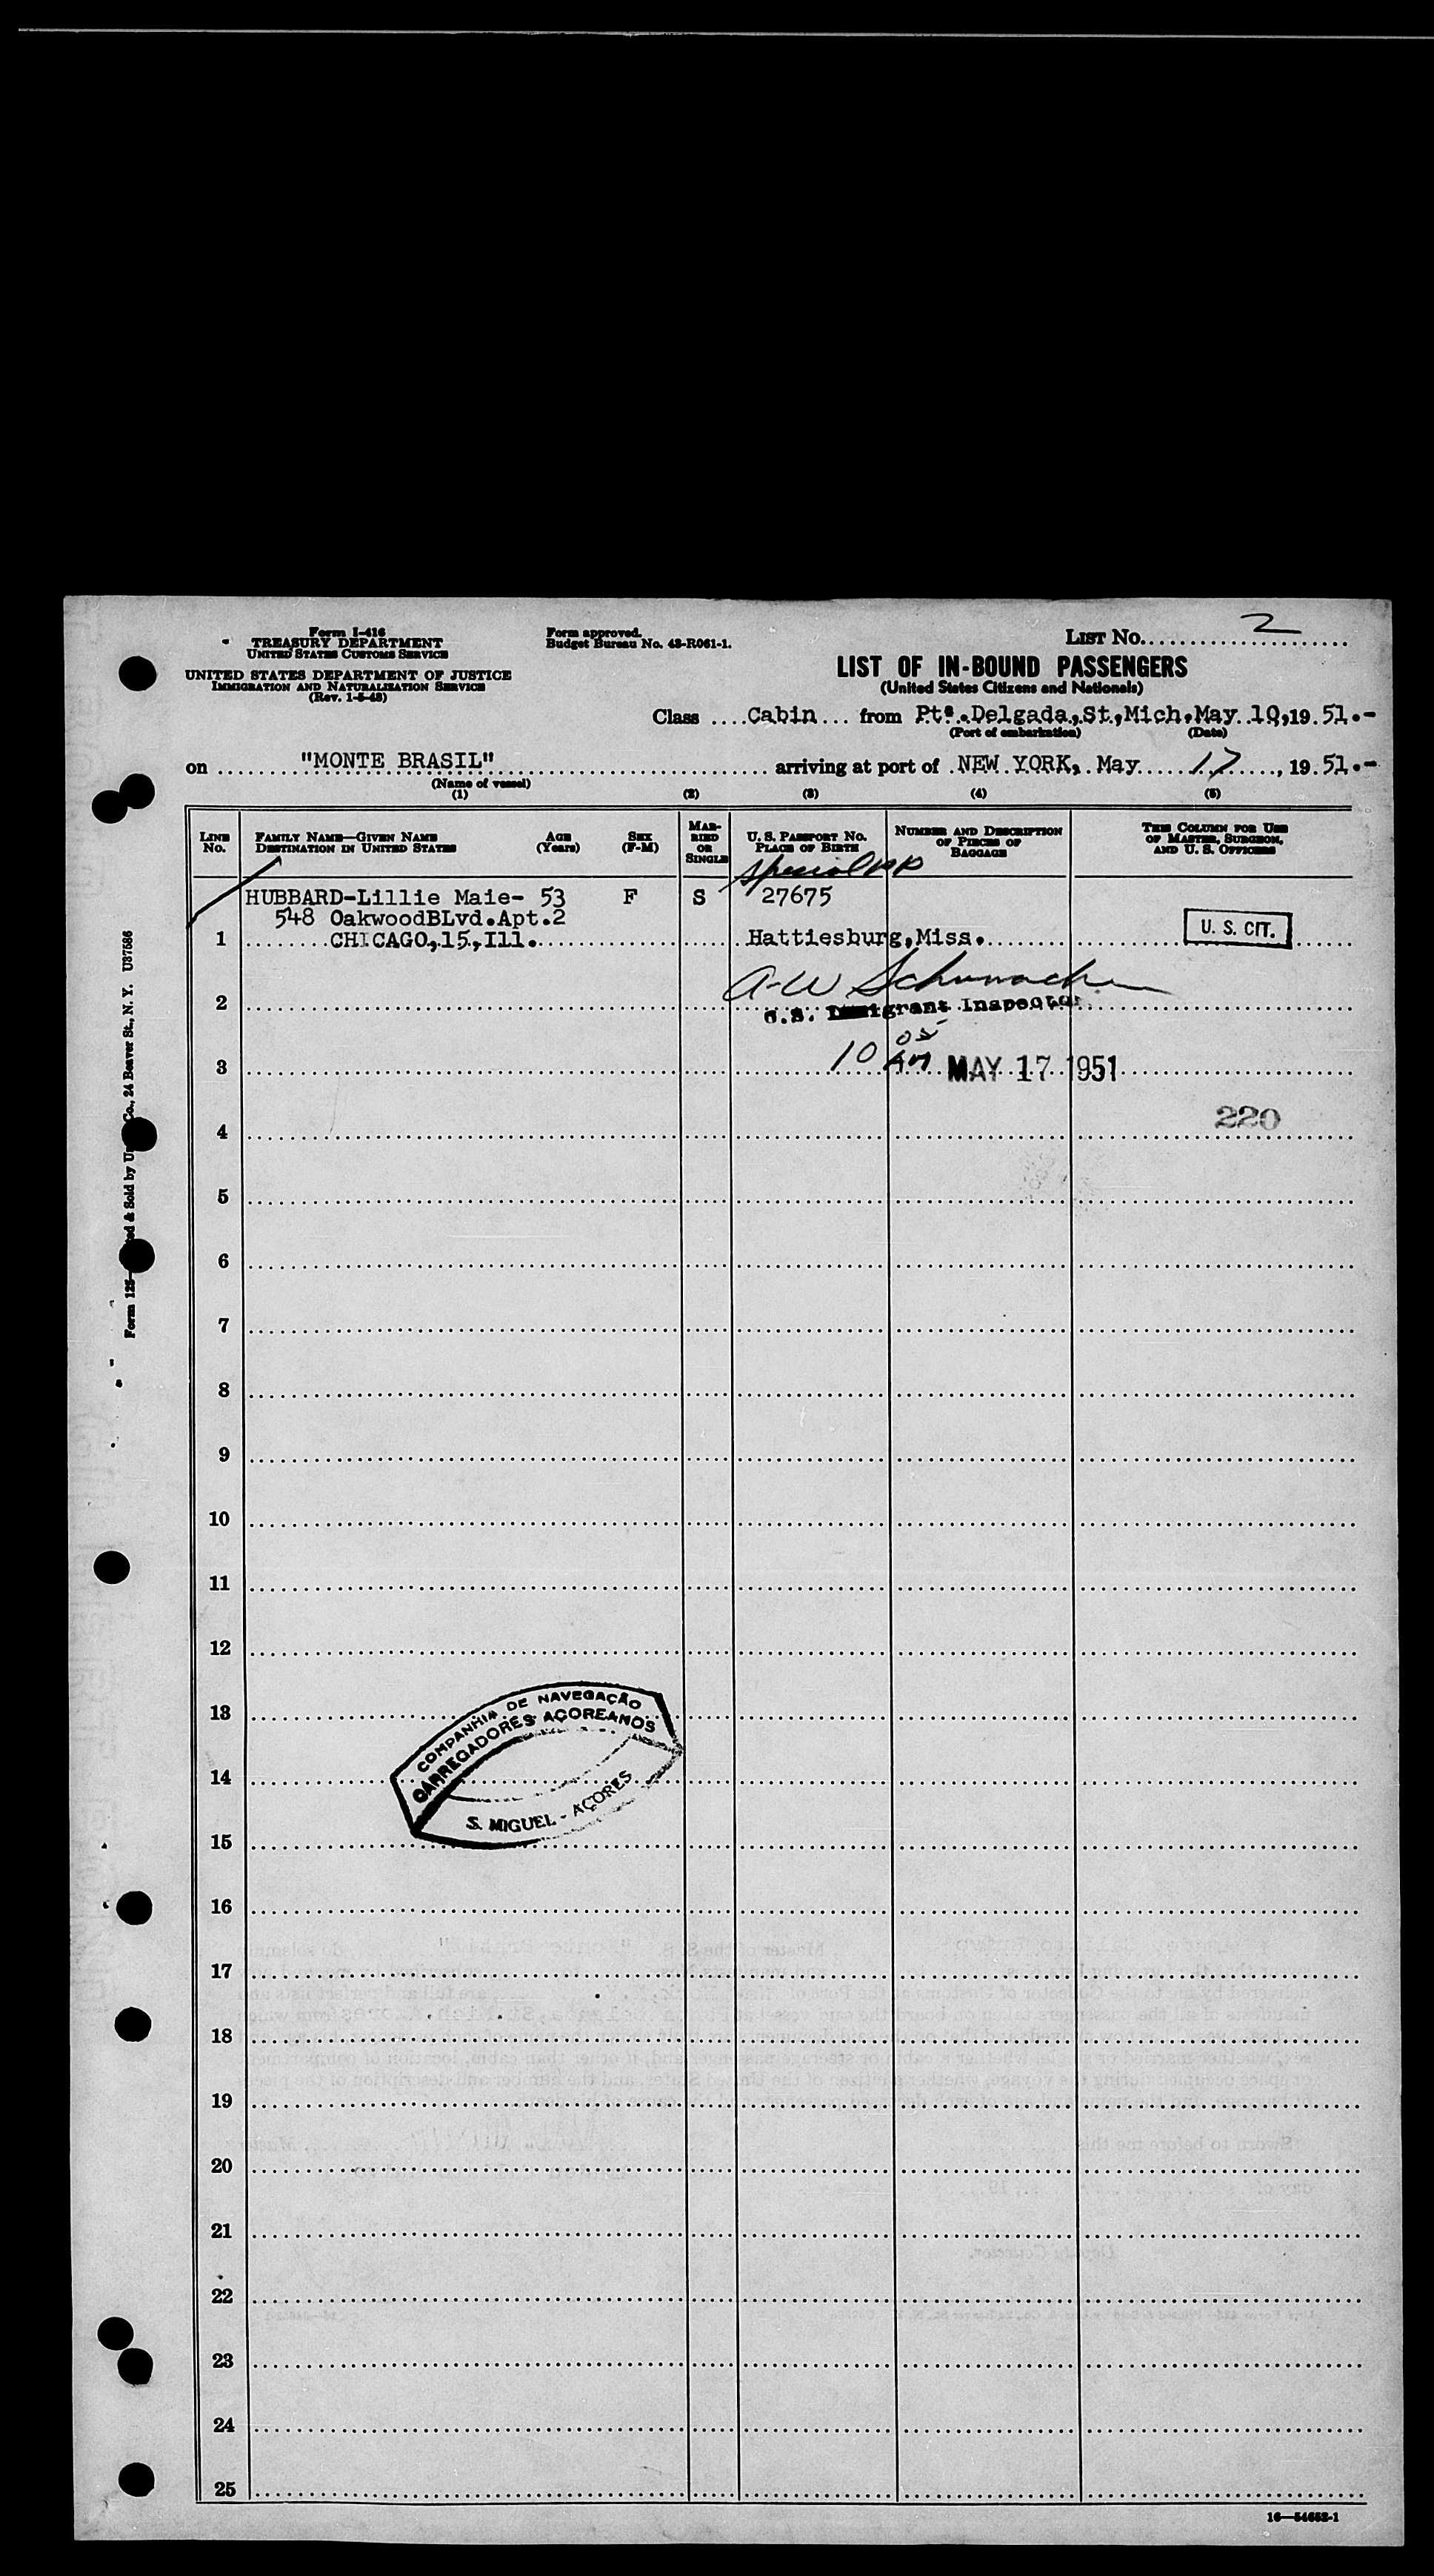 Form I-416
TREASURY DEPARTMENT
UNITED STATES CUSTOMS SERVICE
UNITED STATES DEPARTMENT OF JUSTICE
IMMIGRATION AND NATURALIZATION SERVICE
(Rev. 1-5-48)
Form approved.
Budget Bureau No. 43-R061-1.
LIST No. 2
LIST OF IN-BOUND PASSENGERS
(United States Citizens and Nationals)
Class Cabin from Ptª. Delgada, St, Mich, May 10, 19 51.-
(Port of embarkation) (Date)
on "MONTE BRASIL" arriving at port of NEW YORK, May 17, 19 51.-
(Name of vessel)
(1) (2) (3) (4) (5)
LINE No.
FAMILY NAME—GIVEN NAME
DESTINATION IN UNITED STATES
AGE (Years)
SEX (F-M)
MARRIED OR SINGLE
U. S. PASSPORT NO.
PLACE OF BIRTH
NUMBER AND DESCRIPTION OF PIECES OF BAGGAGE
THIS COLUMN FOR USE OF MASTER, SURGEON, AND U. S. OFFICERS
Special PP
HUBBARD-Lillie Maie- 53 F S 27675
548 OakwoodBLvd.Apt.2
1 CHICAGO,15,Ill. Hattiesburg,Miss. U. S. CIT.
A-W Schumacher
2 U.S. Immigrant Inspector
3 10 05 AM MAY 17 1951
4 220
5
6
7
8
9
10
11
12
13
14
15
16
17
18
19
20
21
22
23
24
25
COMPANHIA DE NAVEGAÇÃO
CARREGADORES AÇOREANOS
S. MIGUEL - AÇORES
Co., 24 Beaver St., N. Y. U37586
& Sold by
16—54652-1